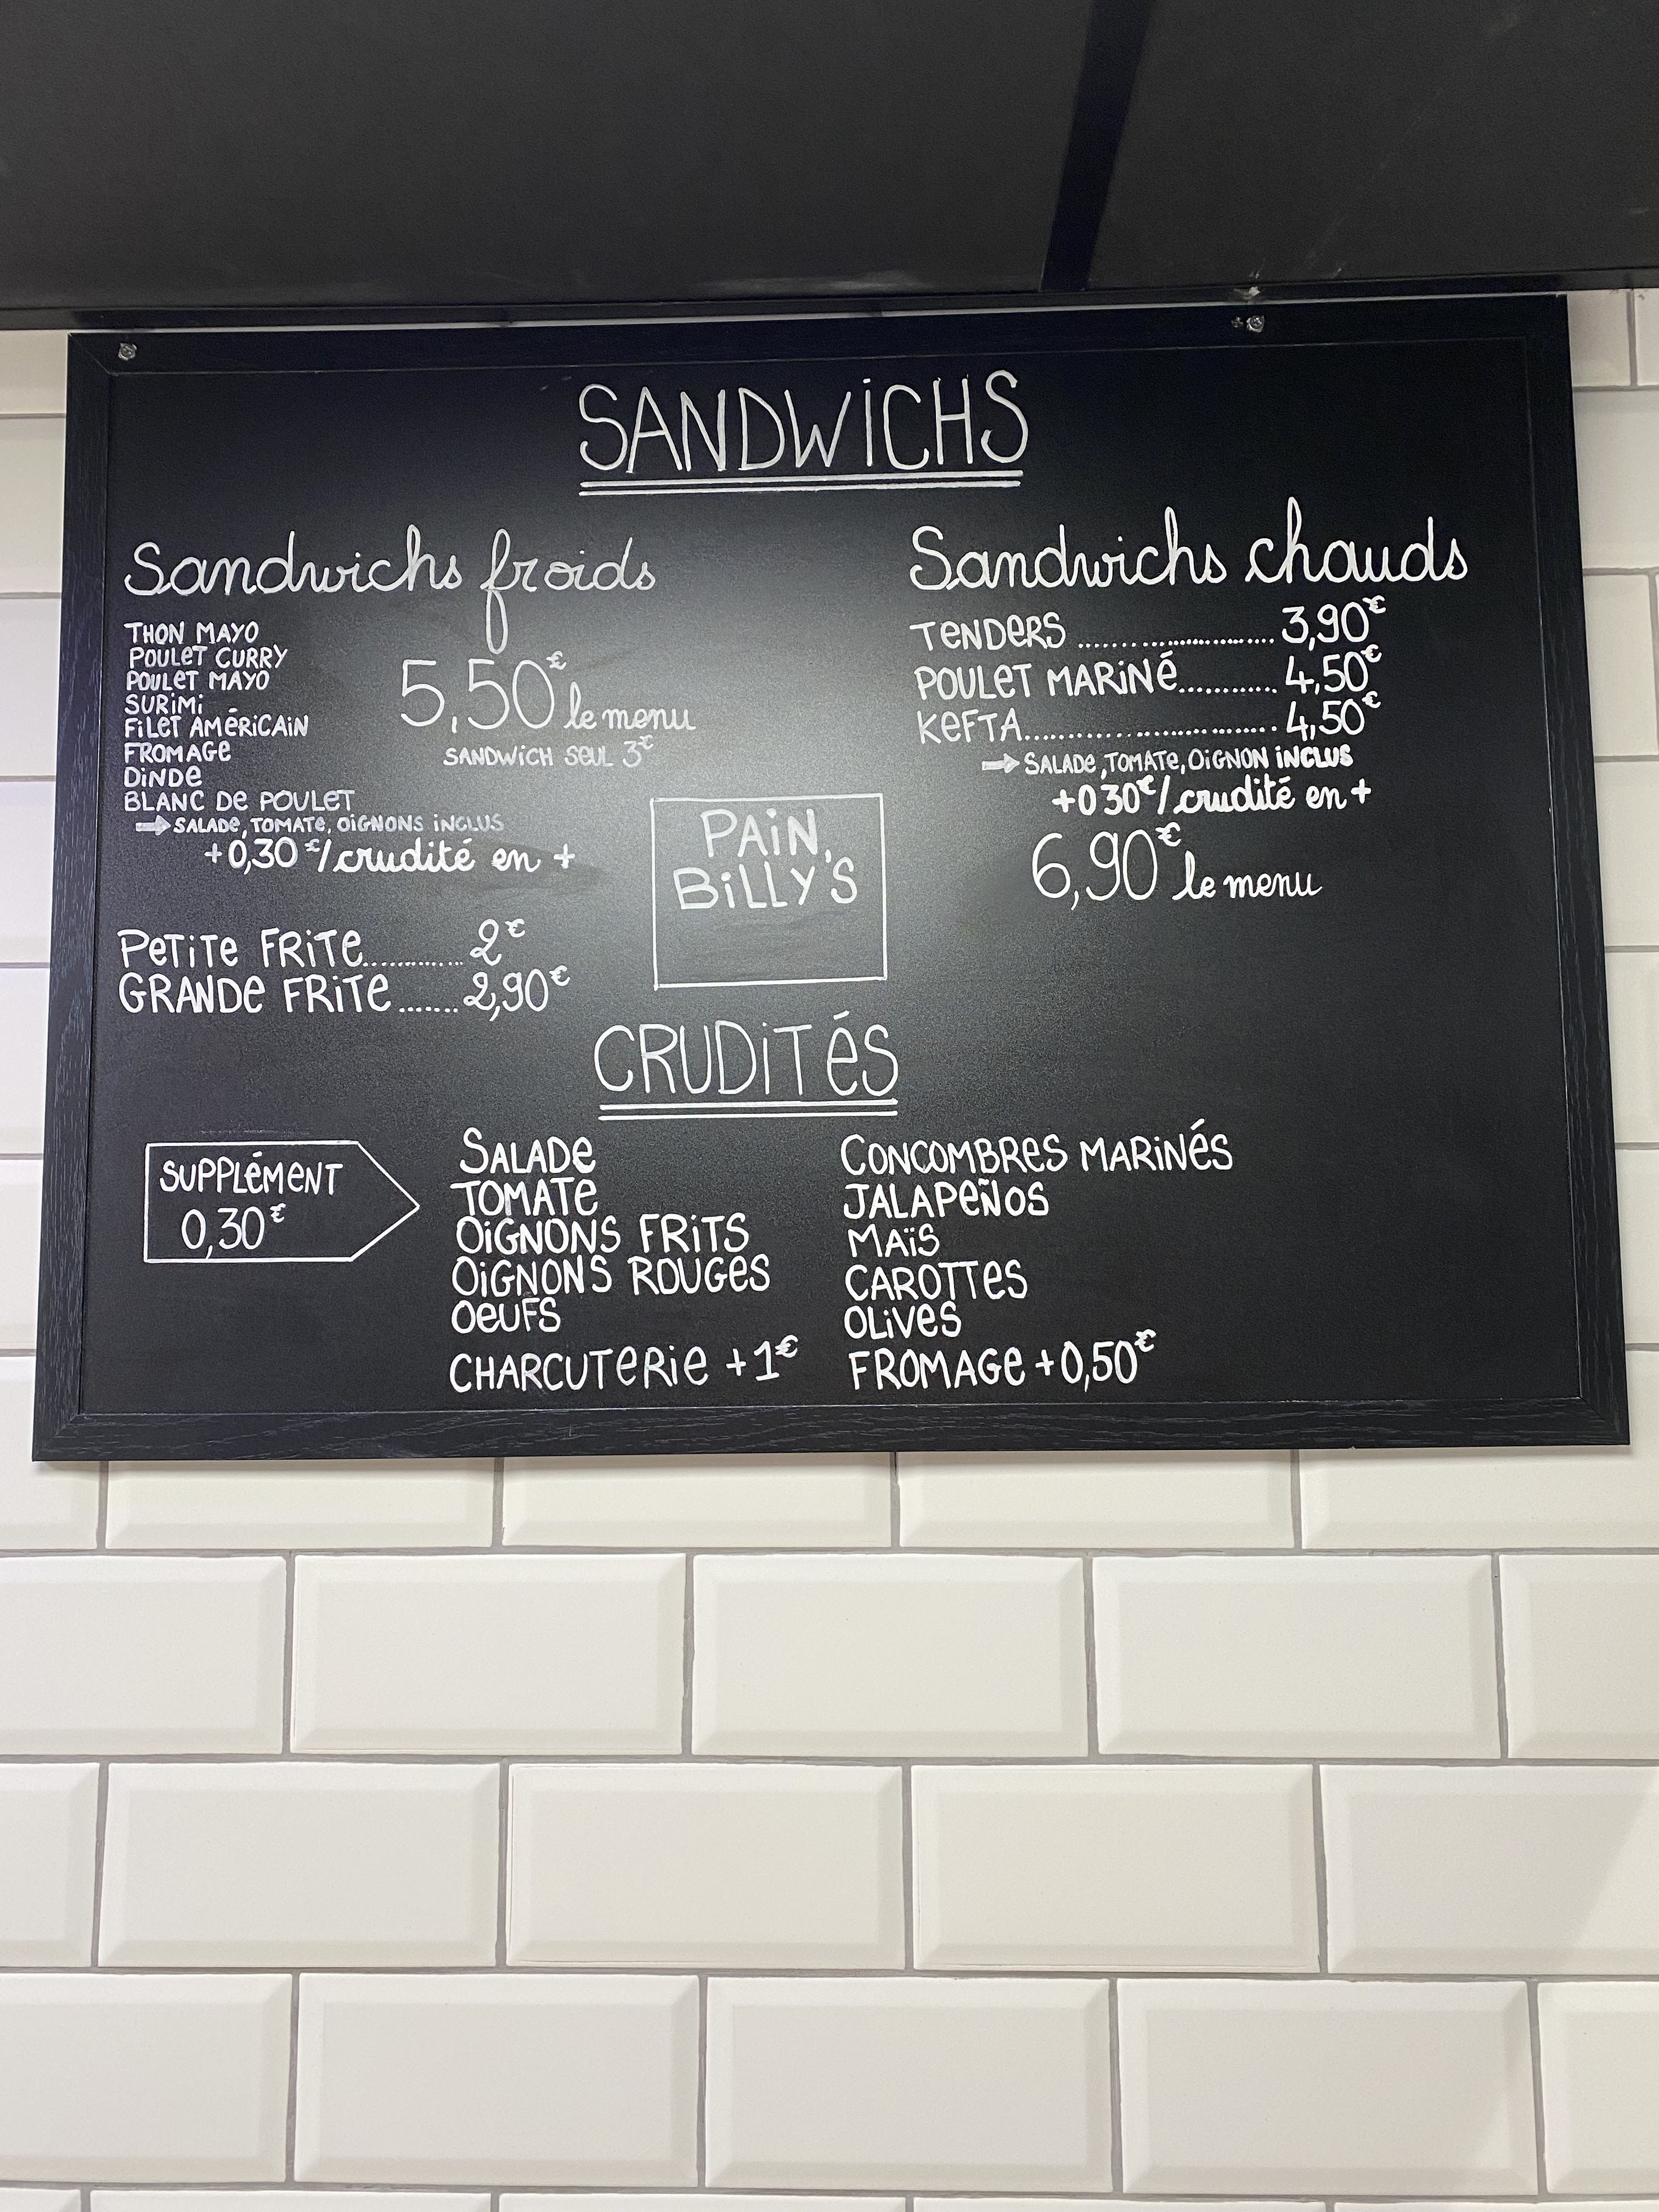 SANDWiCHS
Sandwichs froids
THON MAYO
POULeT CURRY
POULeT MAYO
SURiMi
FiLeT AMéRiCAiN
FROMAGe
DiNDe
BLANC De POULeT
→ SALADe, TOMATe, OiGNONS iNCLUS
+0,30€/crudité en +
5,50€ le menu
SANDWiCH SeUL 3€
PeTiTe FRiTe............2€
GRANDe FRiTe.......2,90€
PAiN
BiLLY'S
Sandwichs chauds
TeNDeRS ........................ 3,90€
POULeT MARiNé............ 4,50€
KeFTA............................... 4,50€
→ SALADe, TOMATe, OiGNON iNCLUS
+0 30€/crudité en +
6,90€ le menu
CRUDiTéS
SUPPLéMeNT
0,30€
SALADe
TOMATe
OiGNONS FRiTS
OiGNONS ROUGeS
OeUFS
CHARCUTeRie +1€
CONCOMBReS MARiNéS
JALAPeÑOS
MAïS
CAROTTeS
OLiVeS
FROMAGe +0,50€